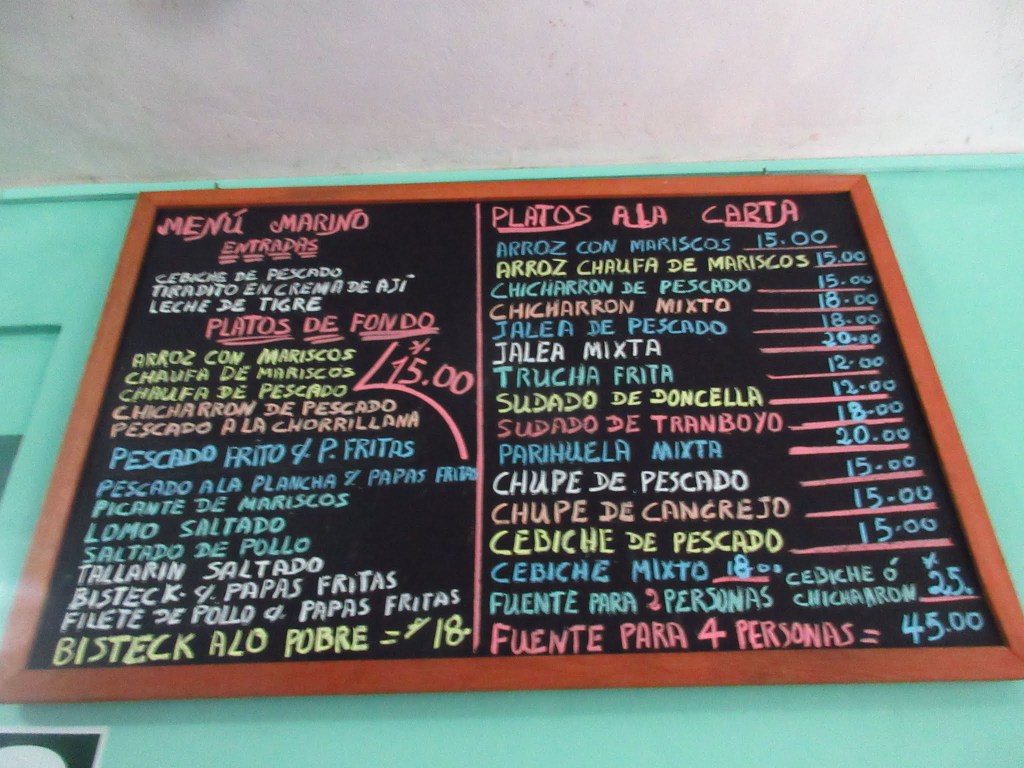 MENÚ MARINO
ENTRADAS
CEBICHE DE PESCADO
TIRADITO EN CREMA DE AJÍ
LECHE DE TIGRE
PLATOS DE FONDO
ARROZ CON MARISCOS
CHAUFA DE MARISCOS
CHAUFA DE PESCADO
CHICHARRON DE PESCADO
PESCADO A LA CHORRILLANA
S/. 15.00
PESCADO FRITO c/. P. FRITAS
PESCADO A LA PLANCHA c/ PAPAS FRITAS
PICANTE DE MARISCOS
LOMO SALTADO
SALTADO DE POLLO
TALLARIN SALTADO
BISTECK c/. PAPAS FRITAS
FILETE DE POLLO c/. PAPAS FRITAS
BISTECK A LO POBRE = S/ 18
PLATOS A LA CARTA
ARROZ CON MARISCOS 15.00
ARROZ CHAUFA DE MARISCOS 15.00
CHICHARRON DE PESCADO 15.00
CHICHARRON MIXTO 18.00
JALEA DE PESCADO 18.00
JALEA MIXTA 20.00
TRUCHA FRITA 12.00
SUDADO DE DONCELLA 12.00
SUDADO DE TRANBOYO 18.00
PARIHUELA MIXTA 20.00
CHUPE DE PESCADO 15.00
CHUPE DE CANGREJO 15.00
CEBICHE DE PESCADO 15.00
CEBICHE MIXTO 18.00
FUENTE PARA 2 PERSONAS CEBICHE Ó CHICHARRON 25.
FUENTE PARA 4 PERSONAS = 45.00